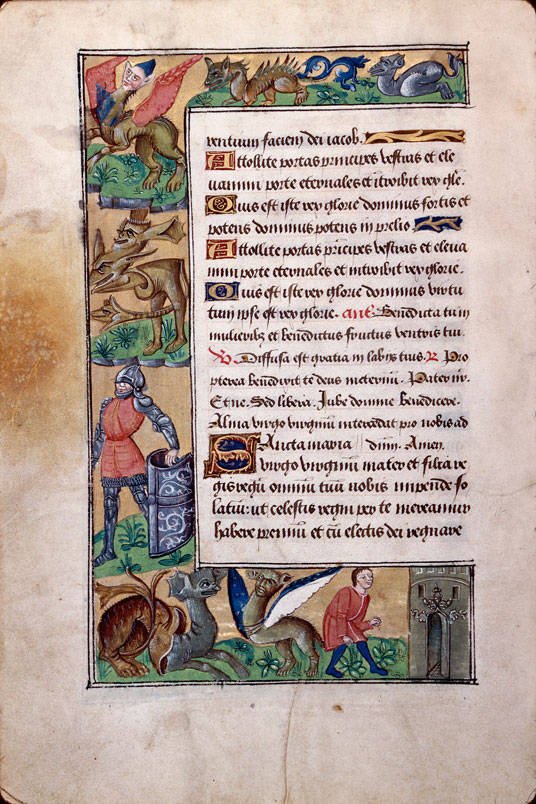 rentium faciem dei iacob.
Attollite portas principes vestras et ele
uamini porte eternales et itroibit rex gle.
Quis est iste rex glorie dominus fortis et
potens dominus potens in prelio
Attollite portas pricipes vestras et eleua
mini porte eternales et introibit rex glorie.
Quis est iste rex glorie dominus virtu
tum ipse est rex glorie. ant. Benedicta tu in
mulieribz et benedictus fructus ventris tui.
V Diffusa est gratia in labiis tuis. R Pro
pterea benedixit te deus in eternum. Pater nr.
Et ne. Sed libera. Iube domne benedicere.
Alma virgo virginum intercedat pro nobis ad
Sancta maria dnm. Amen.
virgo virginum mater et filia re
gis regum omnium tuum nobis impende so
latium: ut celestis regni per te mereamur
habere premium et cu electis dei regnare